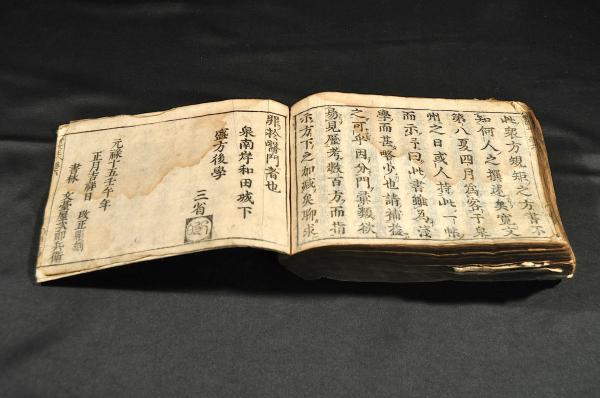 此衆方規矩之方昔不
知何人之撰述矣寛文
第八夏四月為客于泉
州之日或人持此一帖
而示予曰此書雖為淺
學而甚略少也請補益
之可乎因分門彙類欲
易見歷考數百方而指
示方下之加減矣聊求
罪於醫門者也
泉南岸和田城下
盛方後學
三省
元禄十五壬午年
正月吉祥日 改正彫刻
書林 文臺屋次郎兵衞